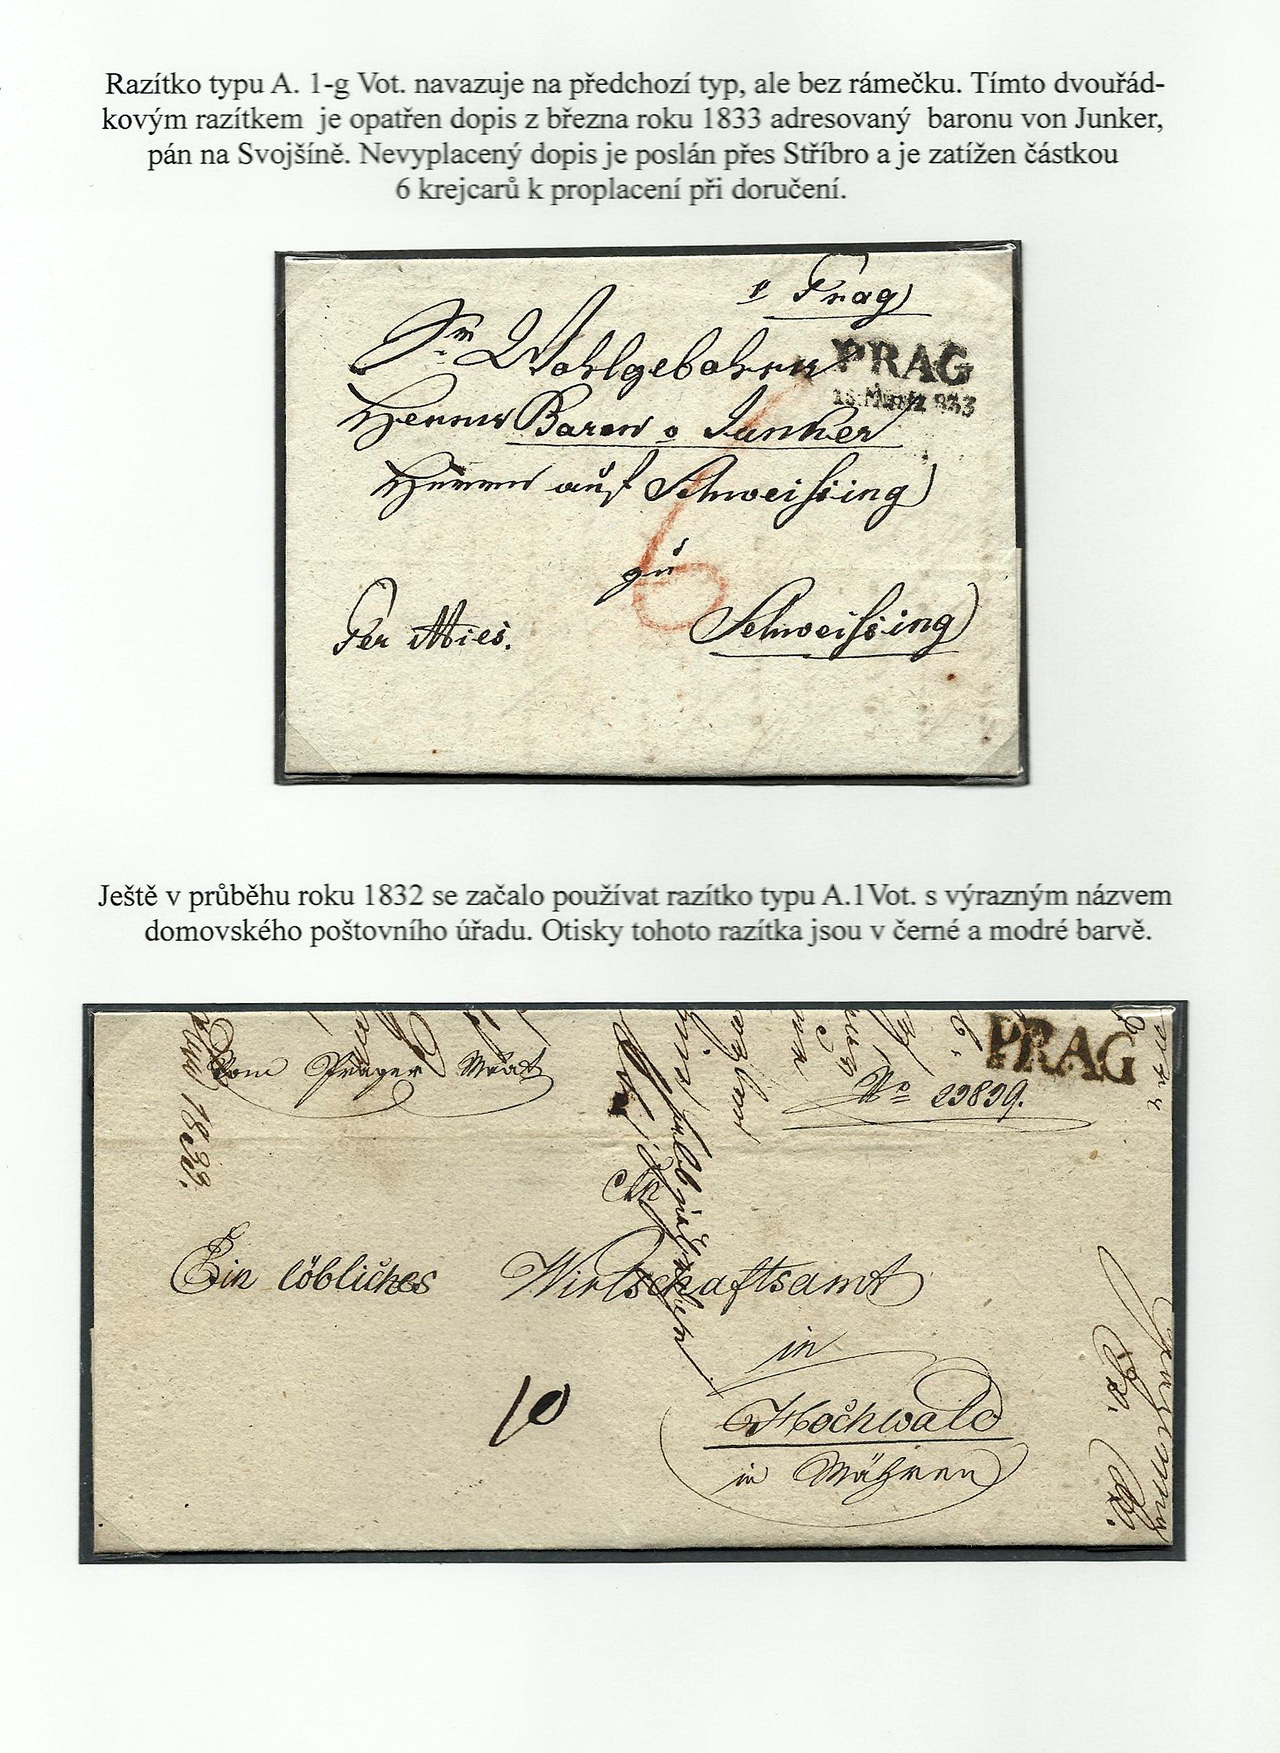 Razítko typu A. 1-g Vot. navazuje na předchozí typ, ale bez rámečku. Tímto dvouřád-
kovým razítkem je opatřen dopis z března roku 1833 adresovaný baronu von Junker,
pán na Svojšíně. Nevyplacený dopis je poslán přes Stříbro a je zatížen částkou
6 krejcarů k proplacení při doručení.
Prag
PRAG
Wohlgebohrn
Herrn Baron v Junker
Herrn auf Schweissing
6
zu
Per Mies.
Schweissing
Ještě v průběhu roku 1832 se začalo používat razítko typu A.1Vot. s výrazným názvem
domovského poštovního úřadu. Otisky tohoto razítka jsou v černé a modré barvě.
PRAG
Vom Prager
No 29839.
An
Ein löbliches Wirtschaftsamt
in
10
Hochwald
in Mähren